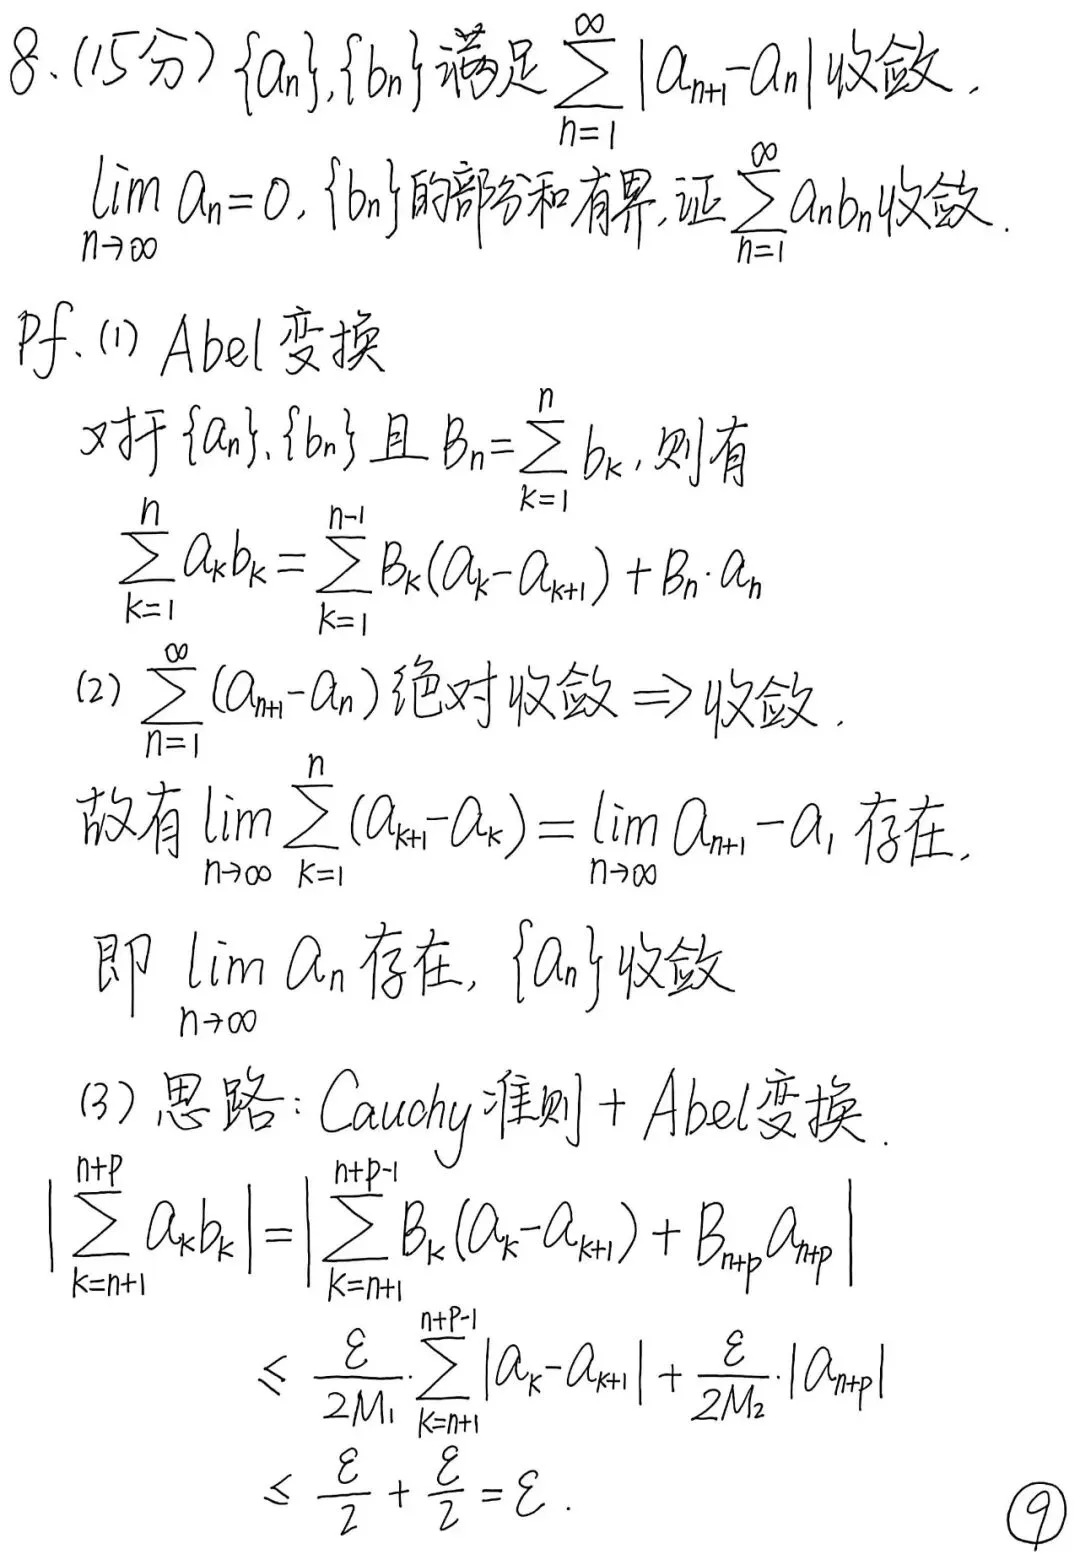 8.(15分) {aₙ},{bₙ}满足 ∑_{n=1}^{∞}|aₙ₊₁-aₙ|收敛.
lim_{n→∞} aₙ=0, {bₙ}的部分和有界,证 ∑_{n=1}^{∞} aₙbₙ收敛.
Pf. (1) Abel变换
对于{aₙ}、{bₙ}且 Bₙ=∑_{k=1}^{n} bₖ, 则有
∑_{k=1}^{n} aₖbₖ = ∑_{k=1}^{n-1} Bₖ(aₖ-aₖ₊₁) + Bₙ·aₙ
(2) ∑_{n=1}^{∞} (aₙ₊₁-aₙ)绝对收敛 ⇒ 收敛.
故有 lim_{n→∞} ∑_{k=1}^{n} (aₖ₊₁-aₖ) = lim_{n→∞} aₙ₊₁ - a₁ 存在,
即 lim_{n→∞} aₙ 存在, {aₙ}收敛
(3) 思路: Cauchy准则 + Abel变换.
|∑_{k=n+1}^{n+p} aₖbₖ| = |∑_{k=n+1}^{n+p-1} Bₖ(aₖ-aₖ₊₁) + Bₙ₊ₚaₙ₊ₚ|
≤ ε/2M₁ · ∑_{k=n+1}^{n+p-1} |aₖ-aₖ₊₁| + ε/2M₂ · |aₙ₊ₚ|
≤ ε/2 + ε/2 = ε.
⑨